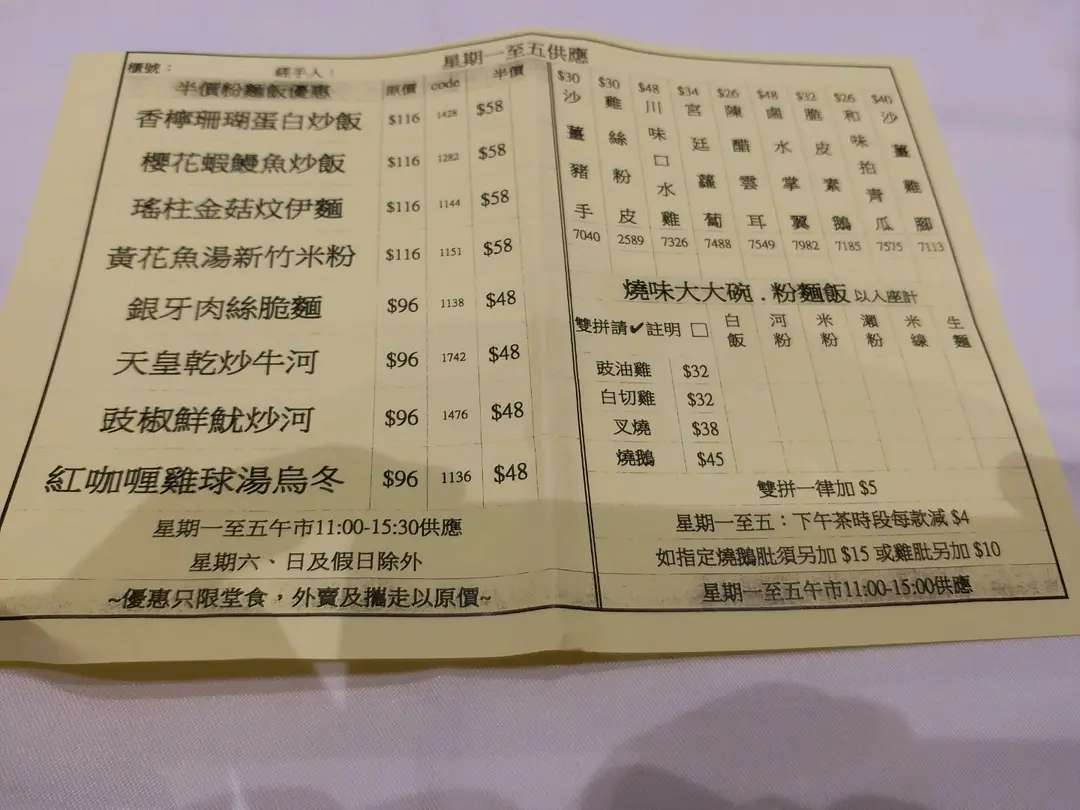 星期一至五供應
櫃號：
經手人：
半價粉麵飯優惠 原價 code 半價
香檸珊瑚蛋白炒飯 $116 1428 $58
櫻花蝦鰻魚炒飯 $116 1282 $58
瑤柱金菇炆伊麵 $116 1144 $58
黃花魚湯新竹米粉 $116 1151 $58
銀牙肉絲脆麵 $96 1138 $48
天皇乾炒牛河 $96 1742 $48
豉椒鮮魷炒河 $96 1476 $48
紅咖喱雞球湯烏冬 $96 1136 $48
星期一至五午市11:00-15:30供應
星期六、日及假日除外
~優惠只限堂食，外賣及攜走以原價~
$30 沙薑豬手 7040
$30 雞絲粉皮 2589
$48 川味口水雞 7326
$34 宮廷蘿蔔 7488
$26 陳醋雲耳 7549
$48 鹵水掌翼 7982
$32 脆皮素鵝 7185
$26 和味拍青瓜 7575
$40 沙薑雞腳 7113
燒味大大碗．粉麵飯 以入座計
雙拼請✔註明 □ 白飯 河粉 米粉 瀨粉 米線 生麵
豉油雞 $32
白切雞 $32
叉燒 $38
燒鵝 $45
雙拼一律加 $5
星期一至五：下午茶時段每款減 $4
如指定燒鵝肶須另加 $15 或雞肶另加 $10
星期一至五午市11:00-15:00供應